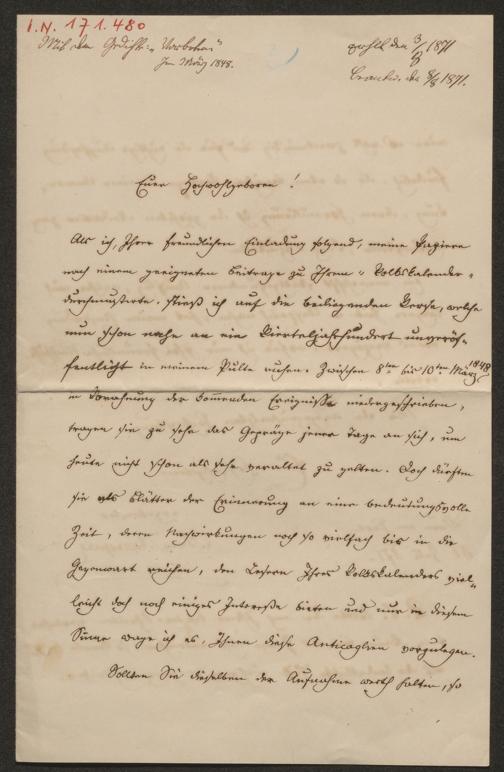 I.N. 171.480
Mit dem Gedichte „Vorboten"
Im März 1848.
erhlt den 3/8 1871
Beantw. den 8/8 1871.
Euer Hochwohlgeboren!
Als ich, Ihrer freundlichen Einladung folgend, meine Papiere
nach einem geeigneten Beitrage zu Ihrem „Volkskalender"
durchmusterte, stieß ich auf die beiliegenden Verse, welche
nun schon nahe an ein Vierteljahrhundert unveröf-
fentlicht in meinem Pulte ruhen. Zwischen 8ten bis 10ten März 1848
in Vorahnung der kommenden Ereignisse niedergeschrieben,
tragen sie zu sehr das Gepräge jener Tage an sich, um
heute nicht schon als sehr veraltet zu gelten. Doch dürften
sie als Blätter der Erinnerung an eine bedeutungsvolle
Zeit, deren Nachwirkungen noch so vielfach bis in die
Gegenwart reichen, den Lesern Ihres Volkskalenders viel-
leicht doch noch einiges Interesse bieten und nur in diesem
Sinne wage ich es, Ihnen diese Anticaglien vorzulegen.
Sollten Sie dieselben der Aufnahme werth halten, so